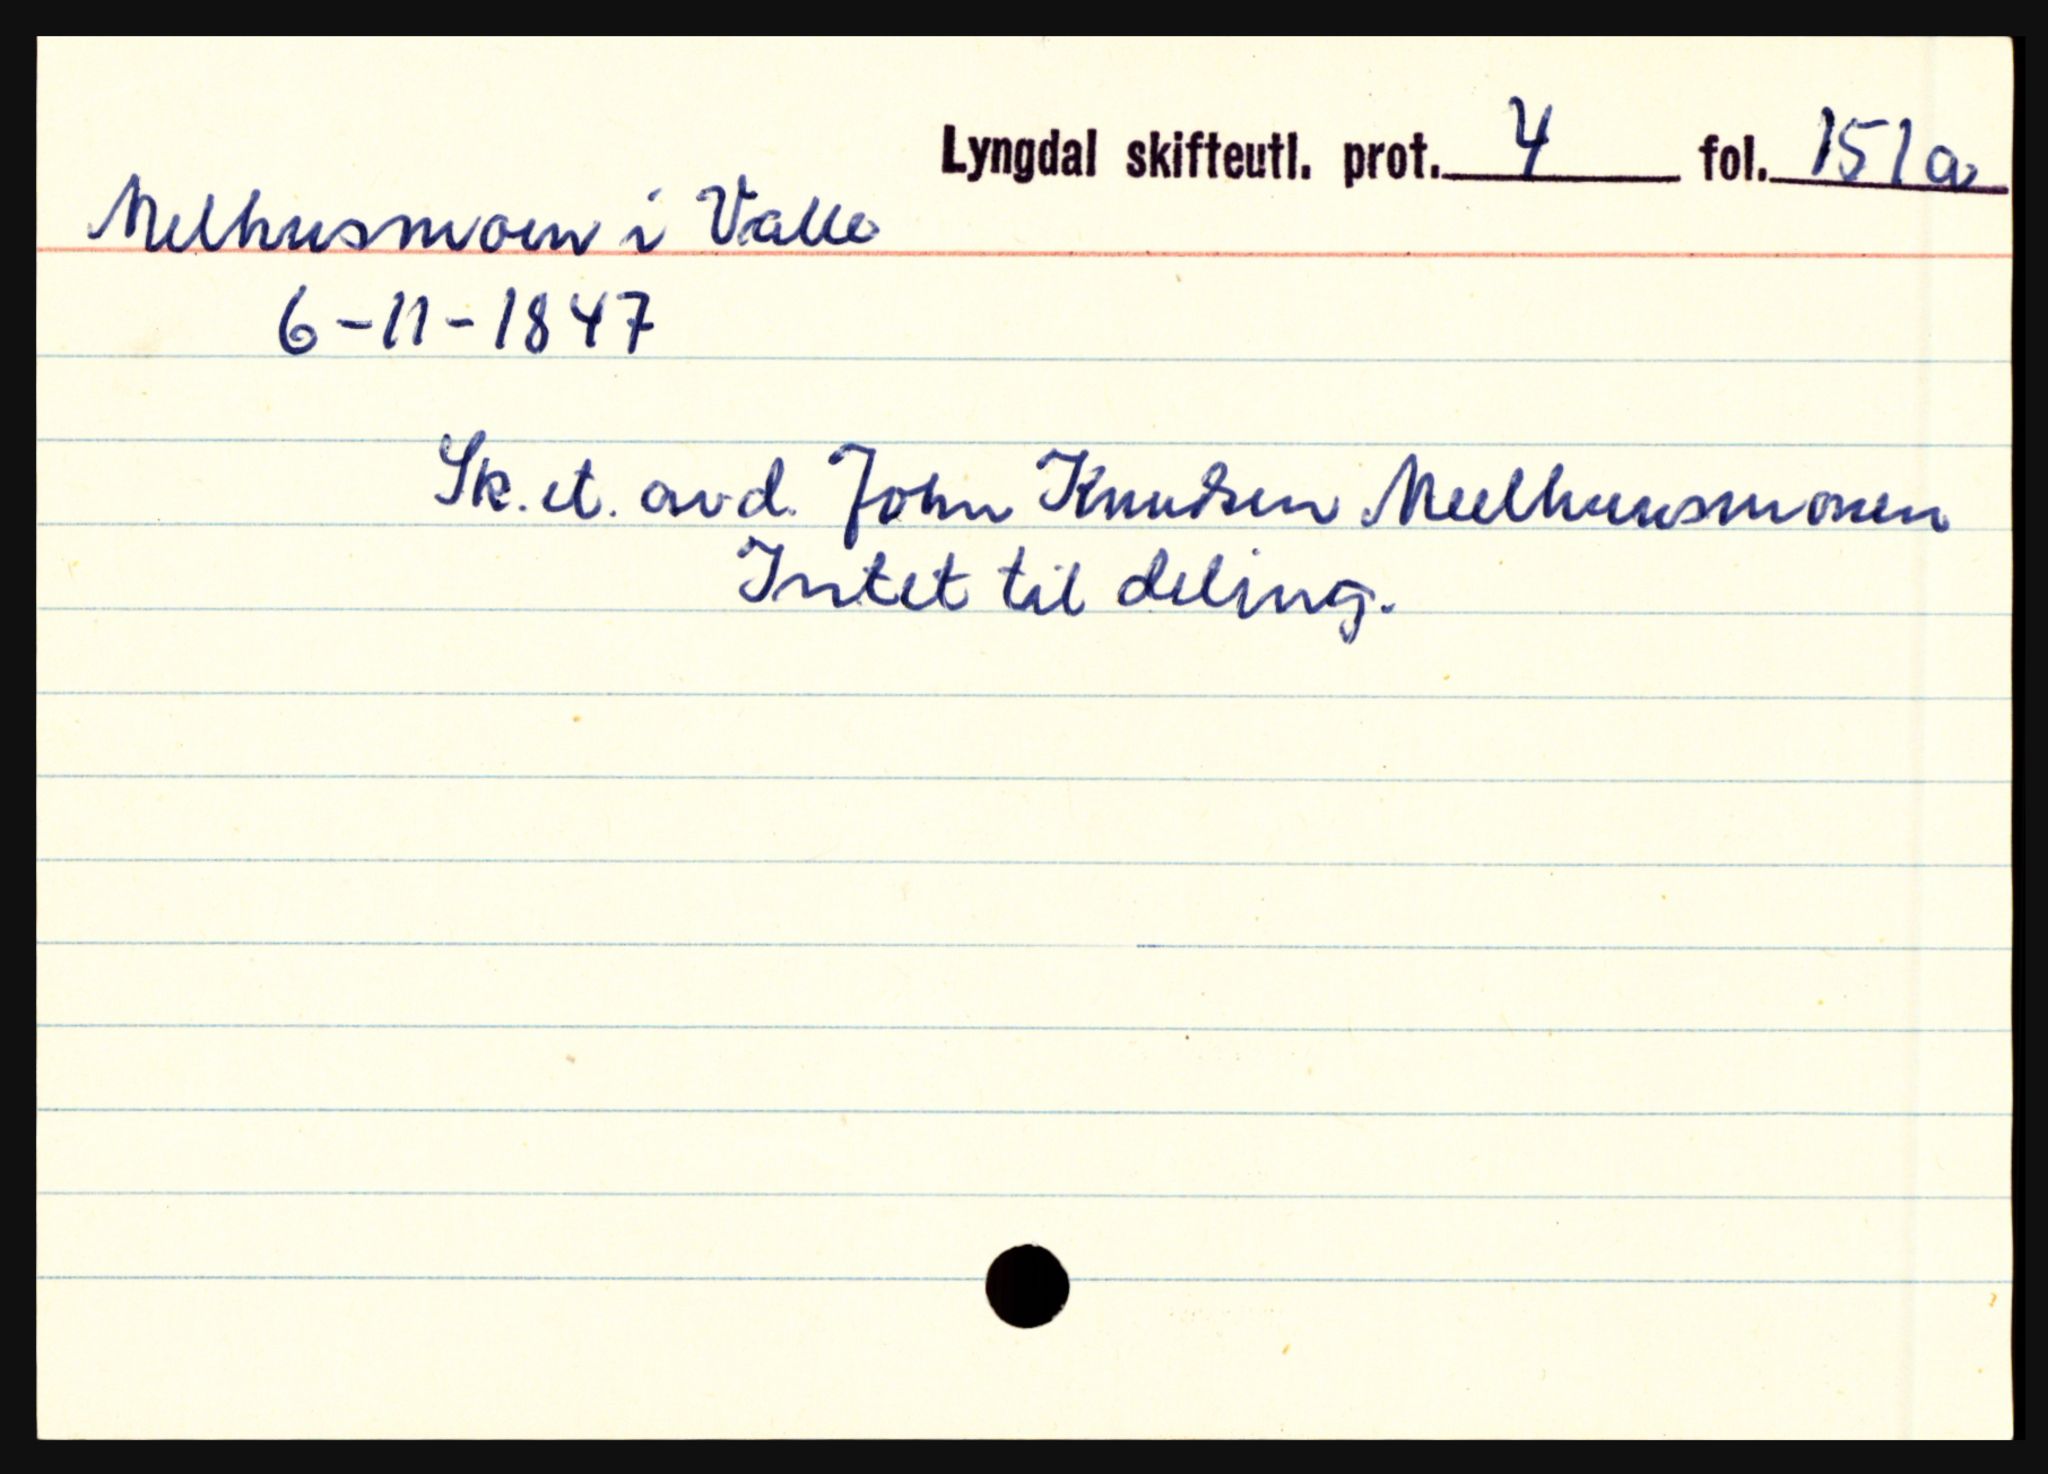 Lyngdal skifteutl. prot. 4 fol. 151a
Melhusmoen i Valle
6-11-1847
Sk. et. avd. John Knudsen Meelhuusmoen
Intet til deling.